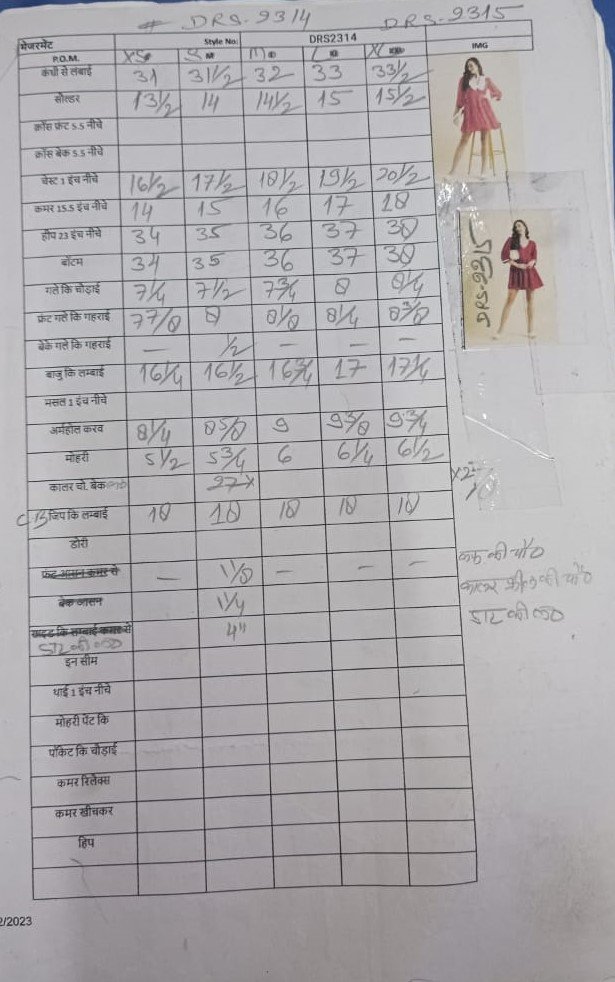 # DRS-2314 DRS-2315
मेजरमेंट Style No: DRS2314
P.O.M. XS S M L XL IMG
कंधी से लंबाई 31 31 1/2 32 33 33 1/2
सोल्डर 13 1/2 14 14 1/2 15 15 1/2
क्रॉस फ्रंट 5.5 नीचे
क्रॉस बेक 5.5 नीचे
चेस्ट 1 इंच नीचे 16 1/2 17 1/2 18 1/2 19 1/2 20 1/2
कमर 15.5 इंच नीचे 14 15 16 17 18
हीप 23 इंच नीचे 34 35 36 37 38
बॉटम 34 35 36 37 38
गले कि चोड़ाई 7 1/4 7 1/2 7 3/4 8 8 1/4
फ्रंट गले कि गहराई 7 7/8 8 8 1/8 8 1/4 8 3/8
बेके गले कि गहराई — 1/2 — — —
बाजु कि लम्बाई 16 1/4 16 1/2 16 3/4 17 17 1/4
मसल 1 इंच नीचे
अर्महोल करव 8 1/4 8 5/8 9 9 3/8 9 3/4
मोहरी 5 1/2 5 3/4 6 6 1/4 6 1/2
कालर चो. बेक
CB जिप कि लम्बाई 18 18 18 18 18
डोरी
फ्रंट आसन कमर से — 1 1/8 — — —
बेक आसन 1 1/4
साइड कि लम्बाई कमर से 4"
डाट की ल०
इन सीम
थाई 1 इंच नीचे
मोहरी पेंट कि
पॉकेट कि चौड़ाई
कमर रिलेक्स
कमर खीचकर
हिप
DRS-2315
कफ की चौ०
कालर फ्रील की चौ०
डाट की ल०
2/2023